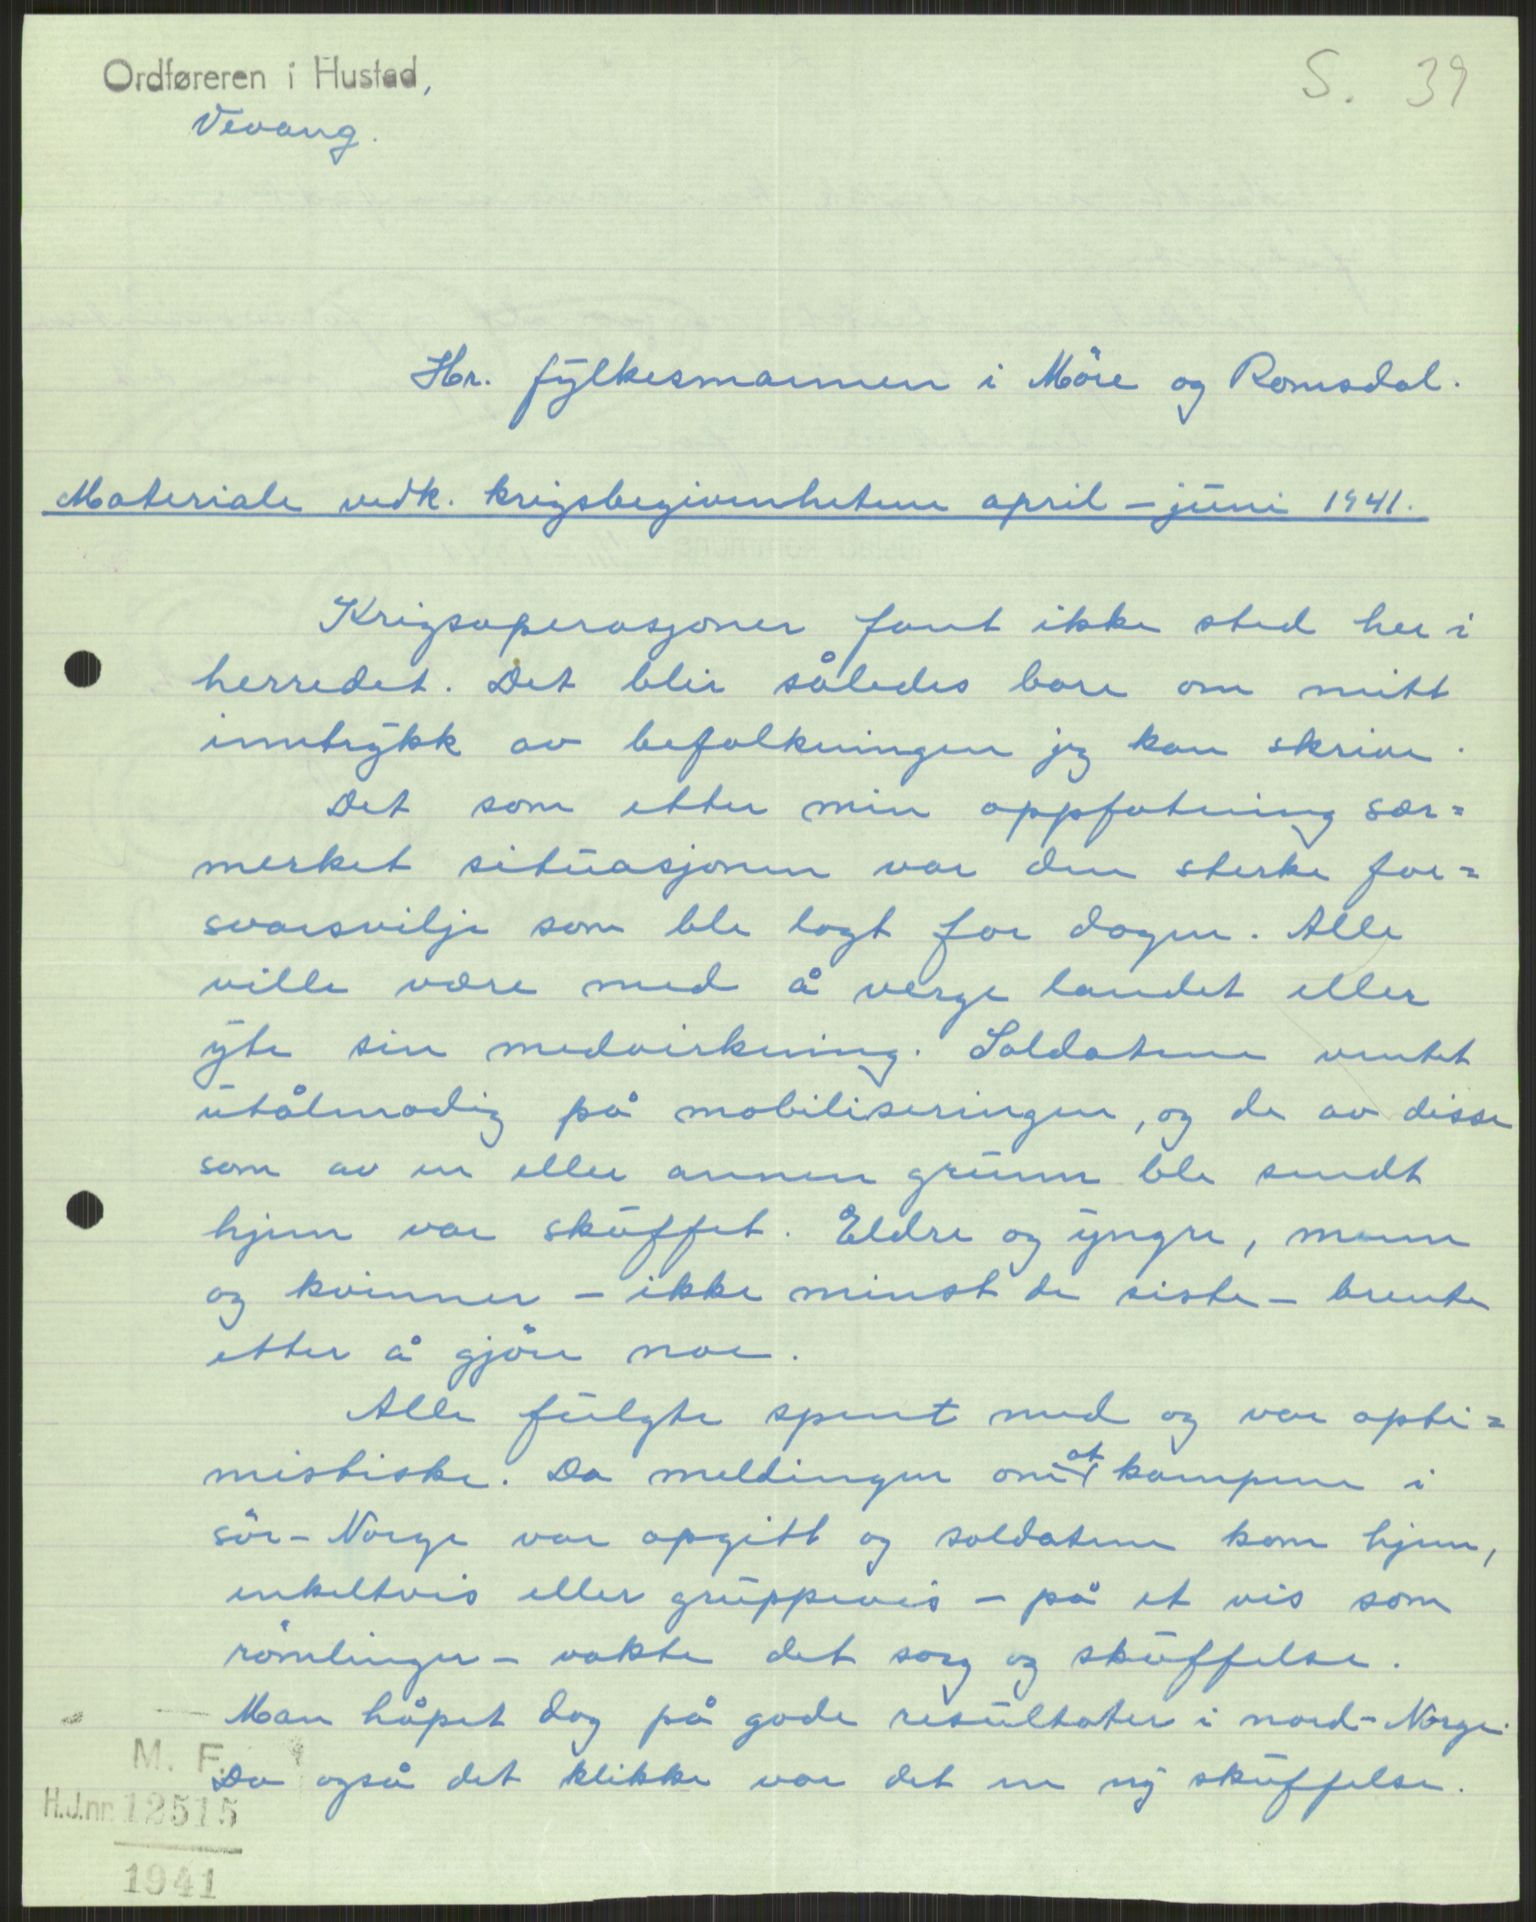 Ordføreren i Hustad,
Vevang.
S. 39
Hr. fylkesmannen i Möre og Romsdal.
Materiale vedk. krigsbegivenhetene april - juni 1941.
Krigsoperasjoner fant ikke sted her i
herredet. Det blir således bare om mitt
inntrykk av befolkningen jeg kan skrive.
Det som etter min oppfatning sær=
merket situasjonen var den sterke for=
svarsvilje som ble lagt for dagen. Alle
ville være med å verge landet eller
yte sin medvirkning. Soldatene ventet
utålmodig på mobiliseringen, og de av disse
som av en eller annen grunn ble sendt
hjem var skuffet. Eldre og yngre, menn
og kvinner - ikke minst de siste - brente
etter å gjöre noe.
Alle fulgte spent med og var opti=
mistiske. Da meldingen om at kampene i
sör-Norge var opgitt og soldatene kom hjem,
enkeltvis eller gruppevis - på et vis som
römlinger - vakte det sorg og skuffelse.
Man håpet dog på gode resultater i nord-Norge.
Da også det klikke var det en ny skuffelse.
M. F.
H.J.nr. 12515
1941